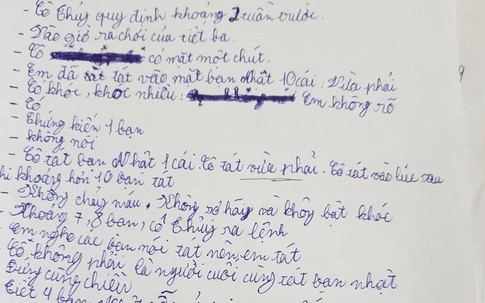 - Cô Thủy quy định khoảng 2 tuần trước.
- Vào giờ ra chơi của tiết ba.
- Cô có mặt một chút.
- Em đã tát tát vào mặt bạn Nhất 10 cái. Vừa phải
- Có khóc, khóc nhiều. Em không rõ
- Có
- Chứng kiến 1 bạn
- không nói
- Cô tát bạn Nhất 1 cái. Cô tát vừa phải. Cô tát vào lúc sau
khi khoảng hơn 10 bạn tát
- Không chảy máu. Không và không bật khóc
- Khoảng 7, 8 bạn, cô Thủy ra lệnh
- Em nghe các bạn nói tát nên em tát
- Cô không phải là người cuối cùng tát bạn nhất
- Đứng cùng chiều
- Tiết 4